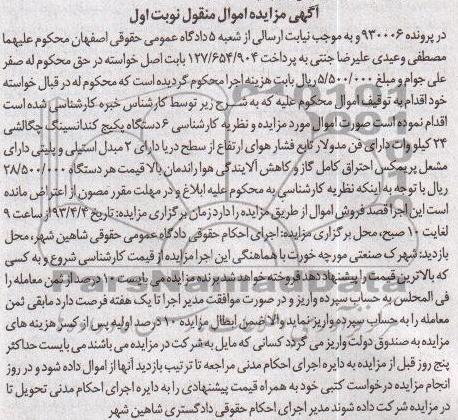 آگهی مزایده اموال منقول نوبت اول
در پرونده ۹۳۰۰۰۶ و به موجب نیابت ارسالی از شعبه ۵ دادگاه عمومی حقوقی اصفهان محکوم علیهما
مصطفی وعیدی علیرضا جنتی به پرداخت ۱۲۷/۶۵۴/۹۰۴ بابت اصل خواسته در حق محکوم له صفر
علی جوام و مبلغ ۵/۵۰۰/۰۰۰ ریال بابت هزینه اجرا محکوم گردیده است که محکوم له در قبال خواسته
خود اقدام به توقیف اموال محکوم علیه که به شرح زیر توسط کارشناس خبره کارشناسی شده است
اقدام نموده است صورت اموال مورد مزایده و نظریه کارشناسی ۶ دستگاه پکیج کندانسینگ چگالشی
۲۴ کیلو وات دارای فن مدولار تابع فشار هوای ارتفاع از سطح دریا دارای ۲ مبدل استیلی و پلیتی دارای
مشعل پریمکس احتراق کامل گاز و کاهش آلایندگی هوا راندمان بالا قیمت هر دستگاه ۲۸/۵۰۰/۰۰۰
ریال با توجه به اینکه نظریه کارشناسی به محکوم علیه ابلاغ و در مهلت مقرر مصون از اعتراض مانده
است این اجرا قصد فروش اموال از طریق مزایده را دارد زمان برگزاری مزایده: تاریخ ۹۳/۴/۴ از ساعت ۹
لغایت ۱۰ صبح، محل برگزاری مزایده: اجرای احکام حقوقی دادگاه عمومی حقوقی شاهین شهر، محل
بازدید: شهرک صنعتی مورچه خورت با هماهنگی این اجرا مزایده از قیمت کارشناسی شروع و به کسی
که بالاترین قیمت را پیشنهاد دهد فروخته خواهد شد برنده مزایده می بایست ۱۰ درصد از ثمن معامله را
فی المجلس به حساب سپرده واریز و در صورت موافقت مدیر اجرا تا یک هفته فرصت دارد مابقی ثمن
معامله را به حساب سپرده واریز نماید والا ضمن ابطال مزایده ۱۰ درصد اولیه پس از کسر هزینه های
مزایده به صندوق دولت واریز می گردد کسانی که مایل به شرکت در مزایده می باشند می بایست حداکثر
پنج روز قبل از مزایده به دایره اجرای احکام مدنی مراجعه تا ترتیب بازدید آنها از اموال داده شود و در روز
انجام مزایده درخواست کتبی خود به همراه قیمت پیشنهادی را به دایره اجرای احکام مدنی تحویل تا
در مزایده شرکت داده شوند مدیر اجرای احکام حقوقی دادگستری شاهین شهر